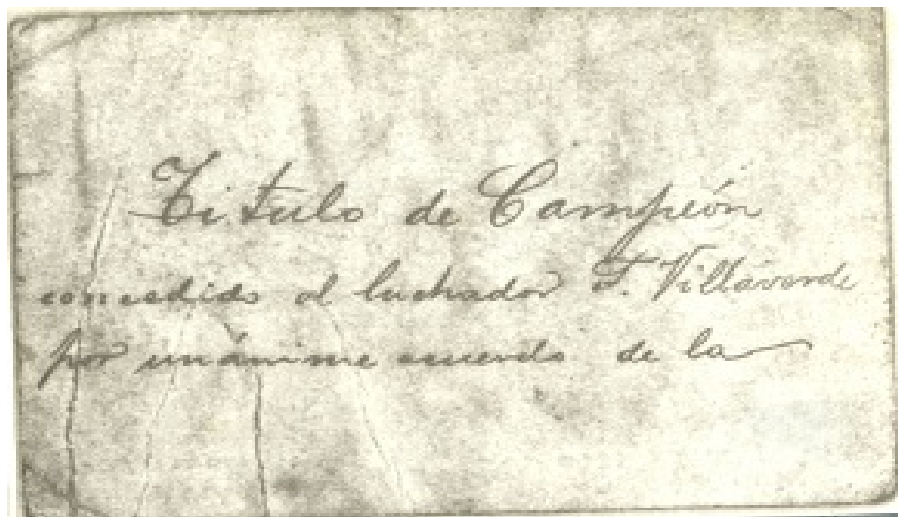 Titulo de Campeón
concedido al luchador F. Villaverde
por unánime acuerdo de la